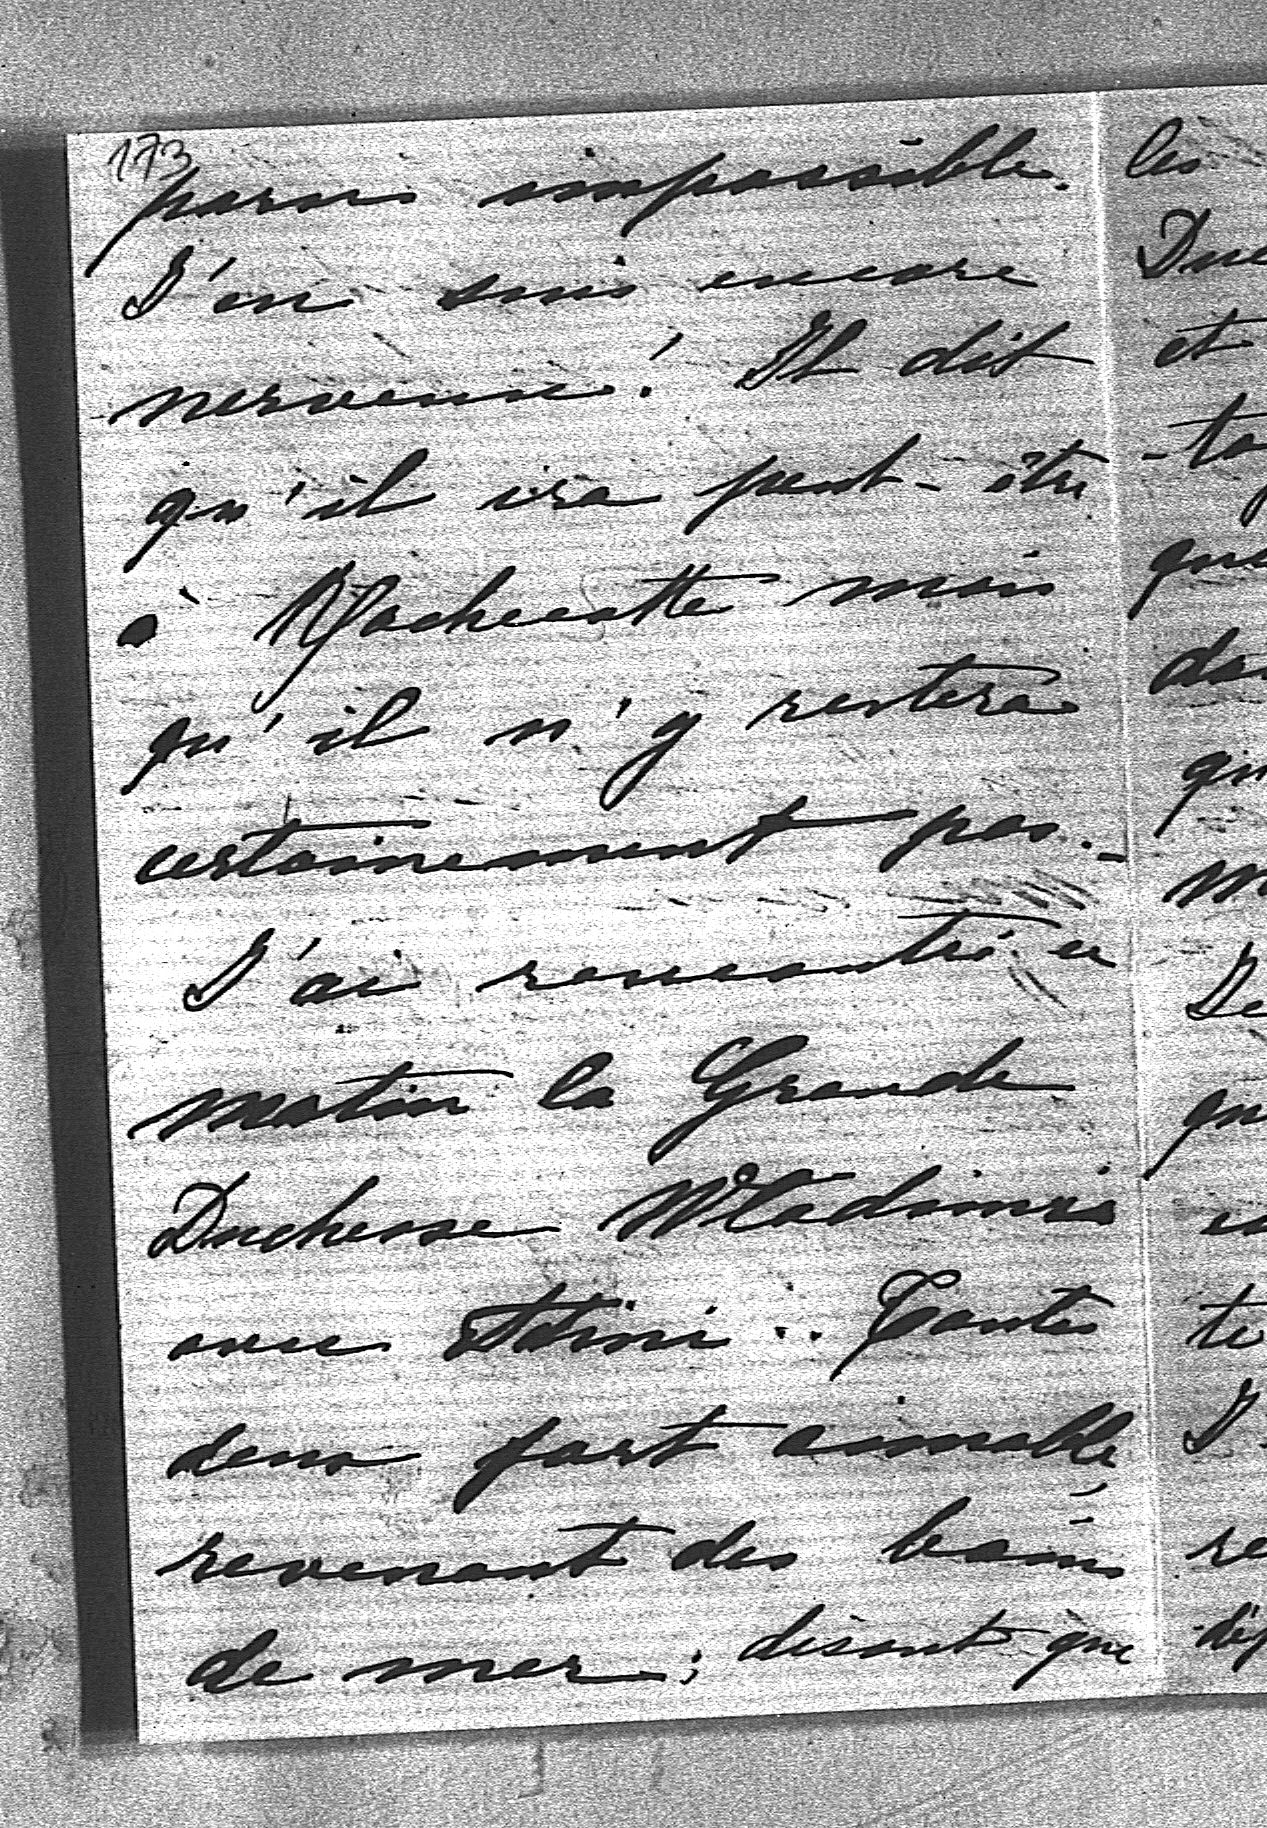 173
paru impossible.
J'en suis encore
nerveuse! Il dit
qu'il ira peut-être
à Rochecotte mais
qu'il n'y restera
certainement pas._
J'ai rencontré ce
matin la Grande
Duchesse Wladimir
avec Adini.. Toutes
deux fort aimables,
revenant des bains
de mer; disant que
les
Duc
et
-to
que
da
qu
m
De
qu
es
te
J
re
dép